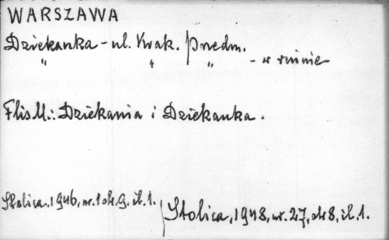 WARSZAWA
Dziekanka - ul. Krak. Przedm.
" " " - w ruinie
Flis M.: Dziekania i Dziekanka.
Stolica, 1946, nr. 1 str. 9, il. 1.
Stolica, 1948, nr. 27, str. 8, il. 1.